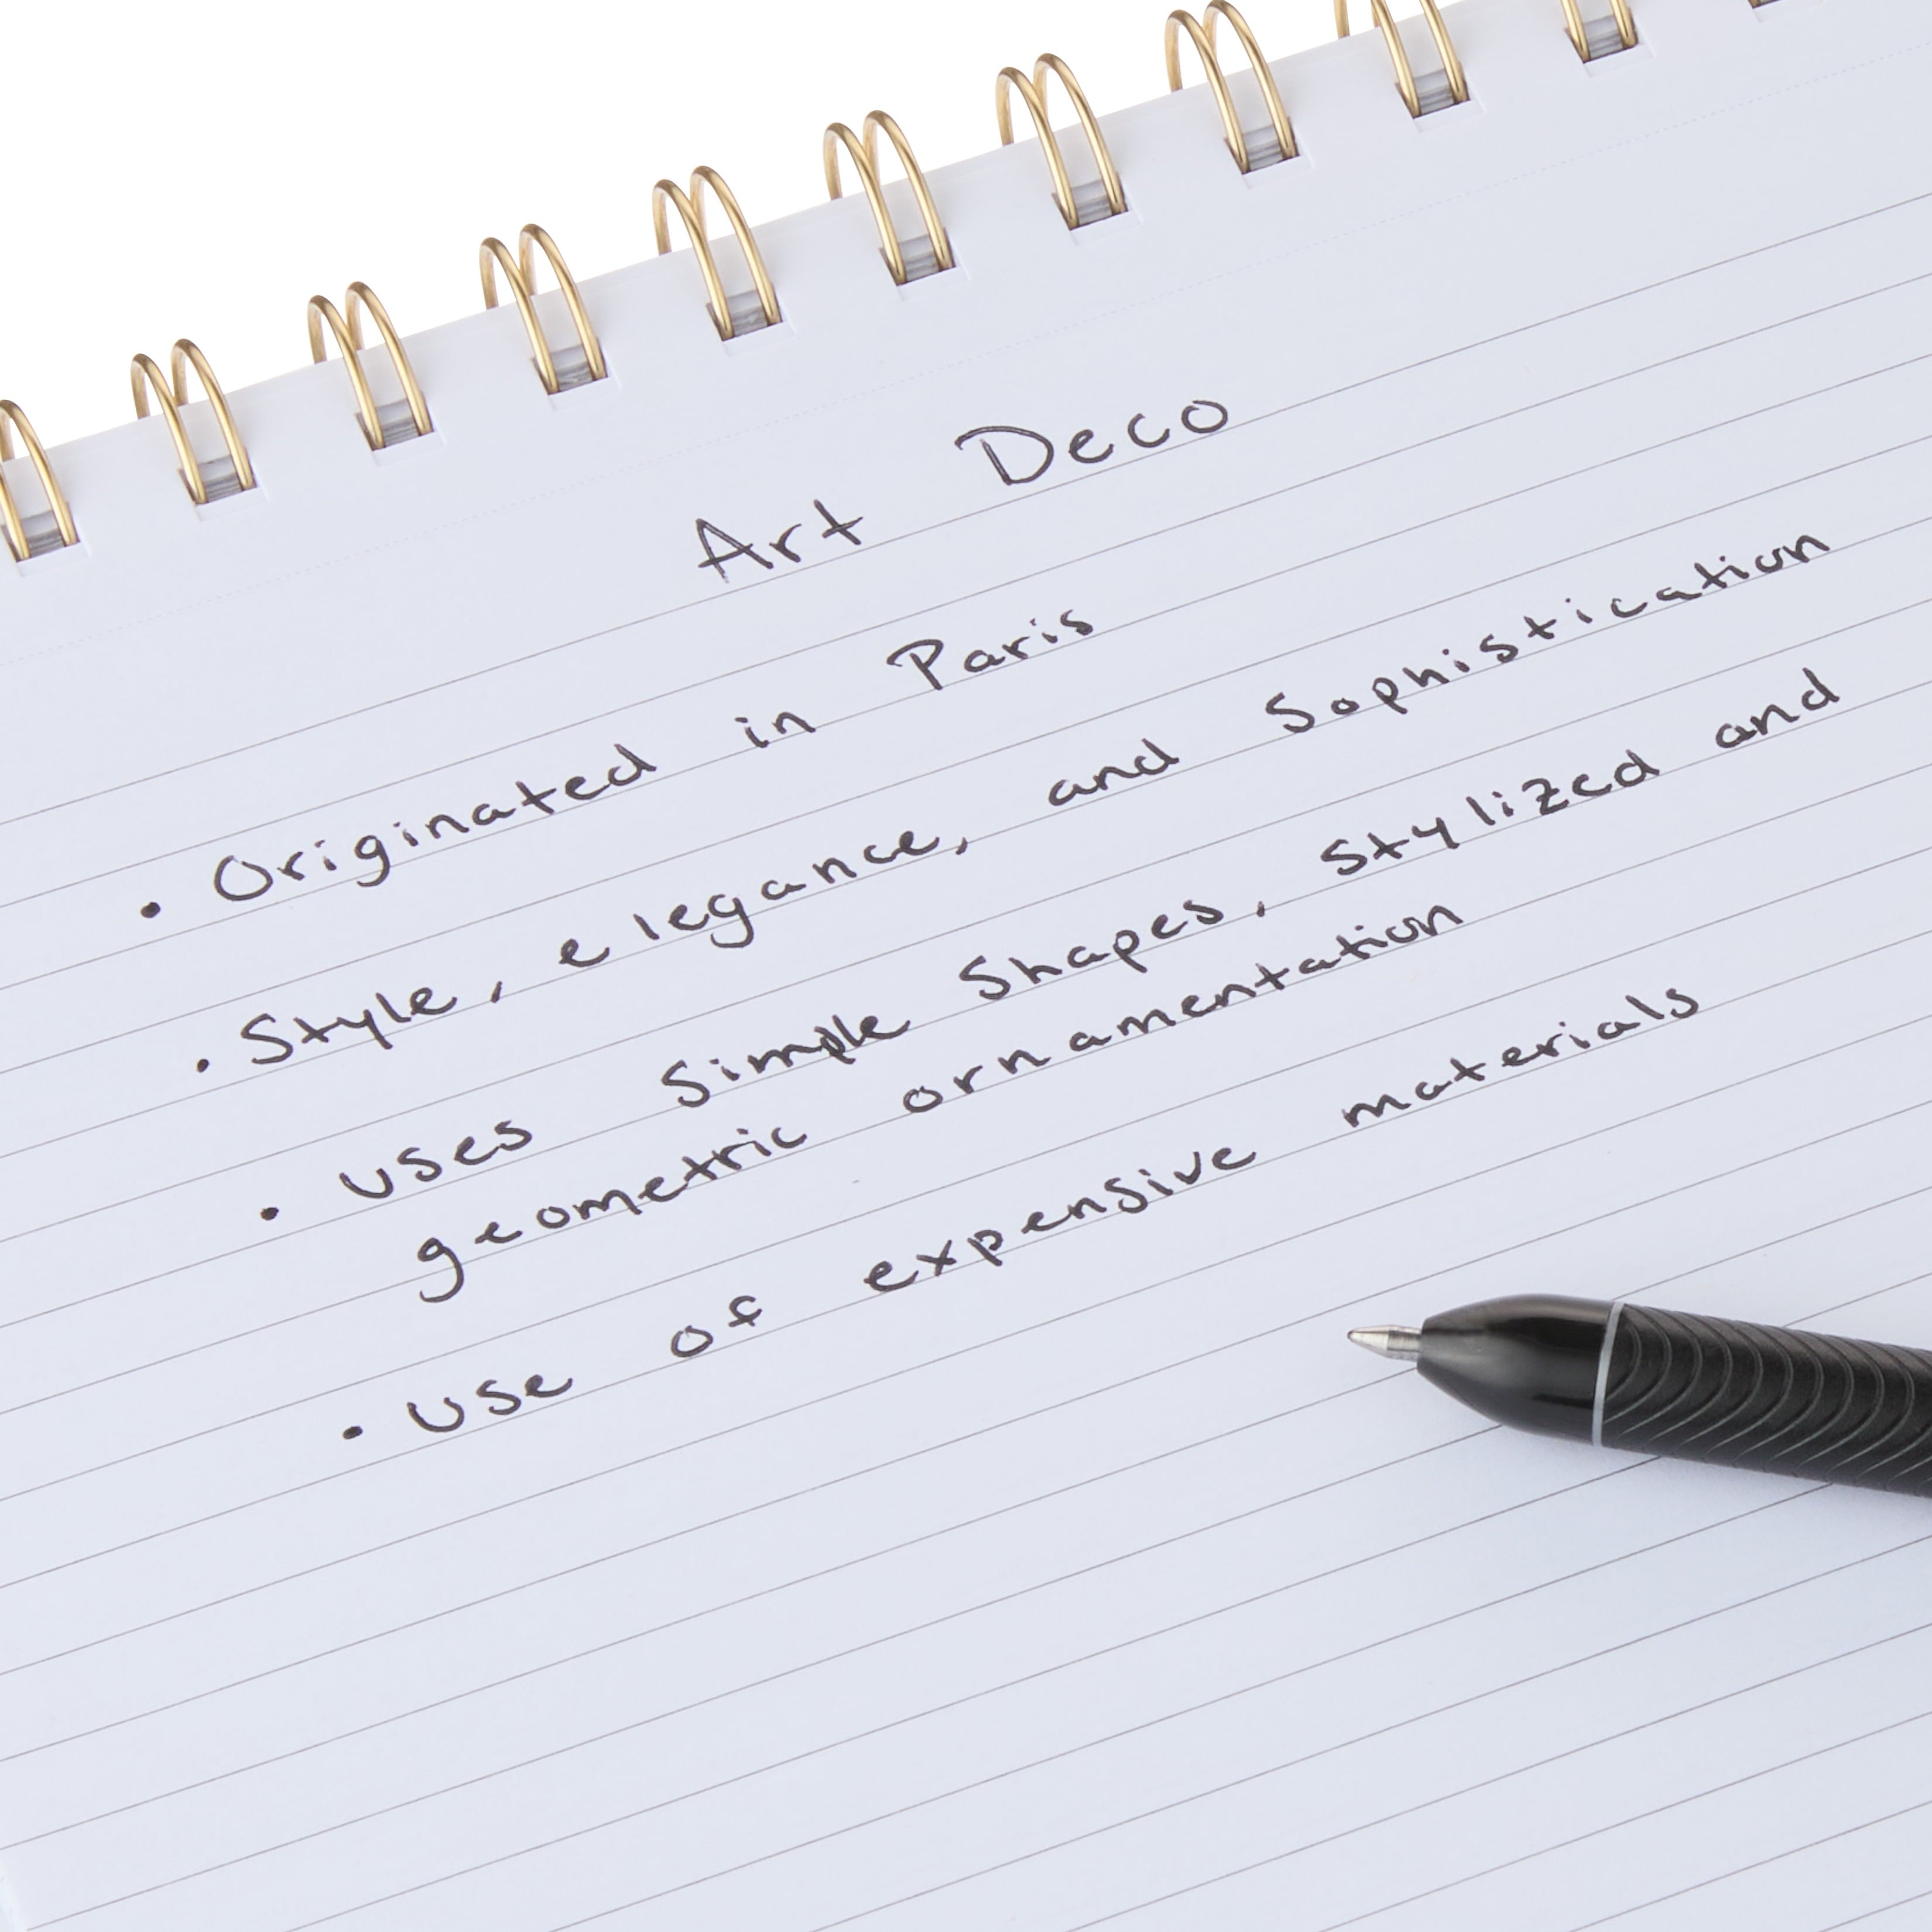 Art Deco
• Originated in Paris
• Style, elegance, and Sophistication
• uses Simple Shapes, Stylized and
geometric ornamentation
• use of expensive materials